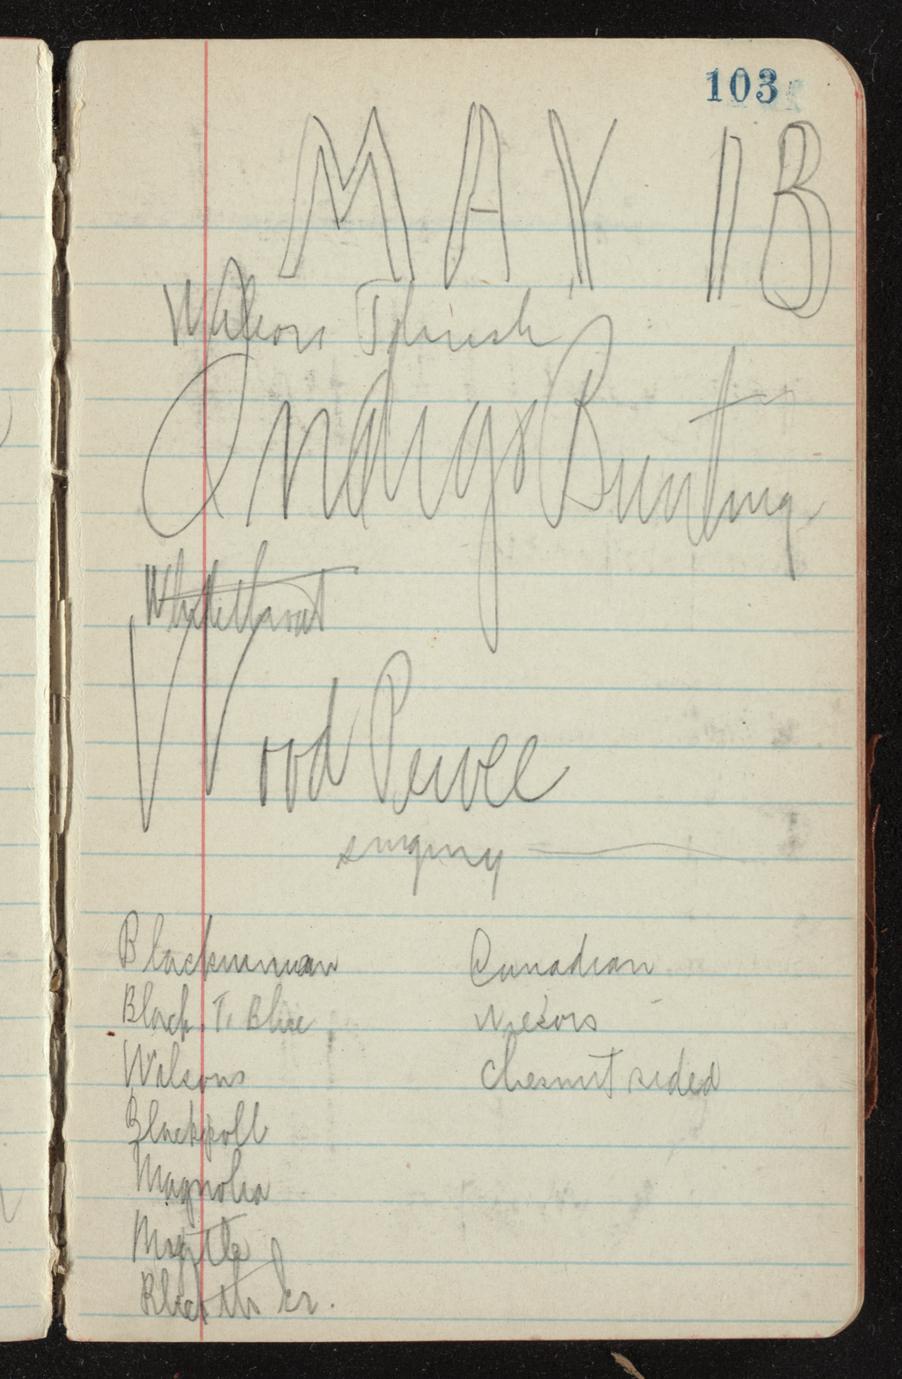 103
MAY 13
Wilsons Thrush
Indigo Bunting
Whitethroat
Wood Pewee
singing
Blackburnian
Canadian
Black. T. Blue
Wilsons
Chesnut sided
Blackpoll
Magnolia
Myrtle
Black th Gr.